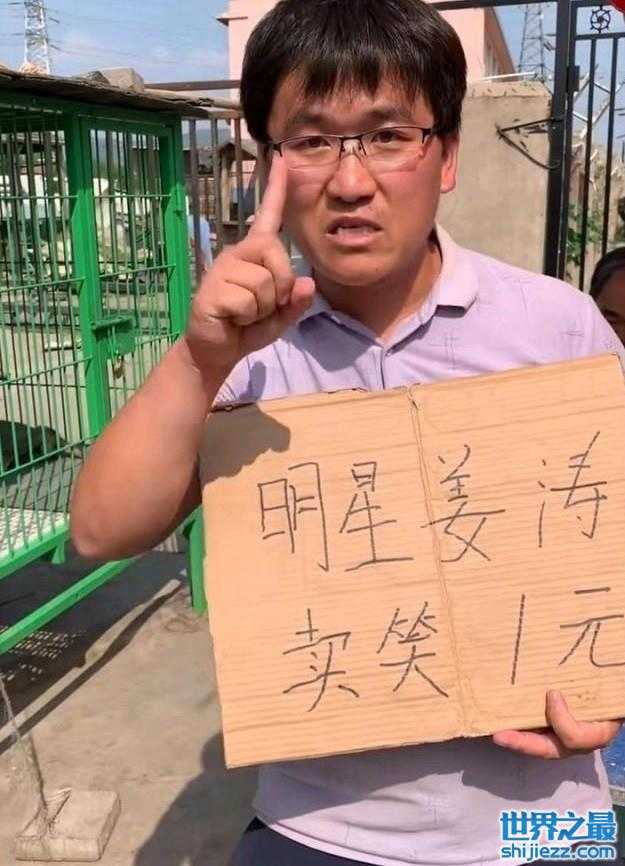 明星姜涛
卖笑1元
世界之最
shijiezz.com